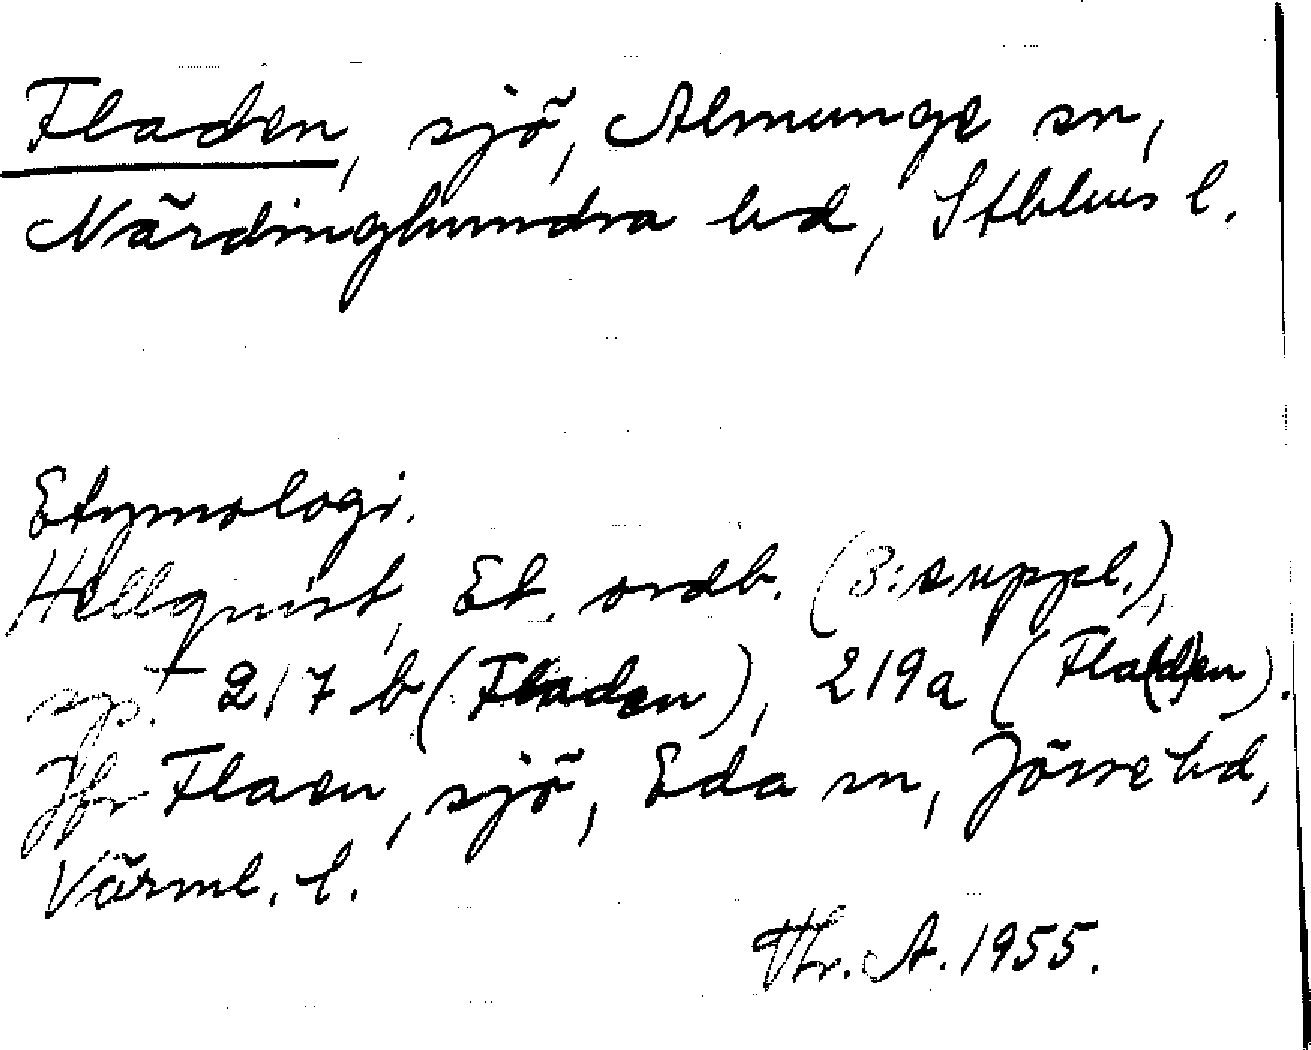 Fladen, sjö, Almunge sn,
Närdinghundra hd, Sthlms l.
Etymologi.
Hellquist, Et. ordb. (3: suppl.),
sp. 217 b (Fladen), 219a (Fla(d)en).
Jfr Flaen, sjö, Eda sn, Jösse hd,
Värml. l.
Thr. A. 1955.